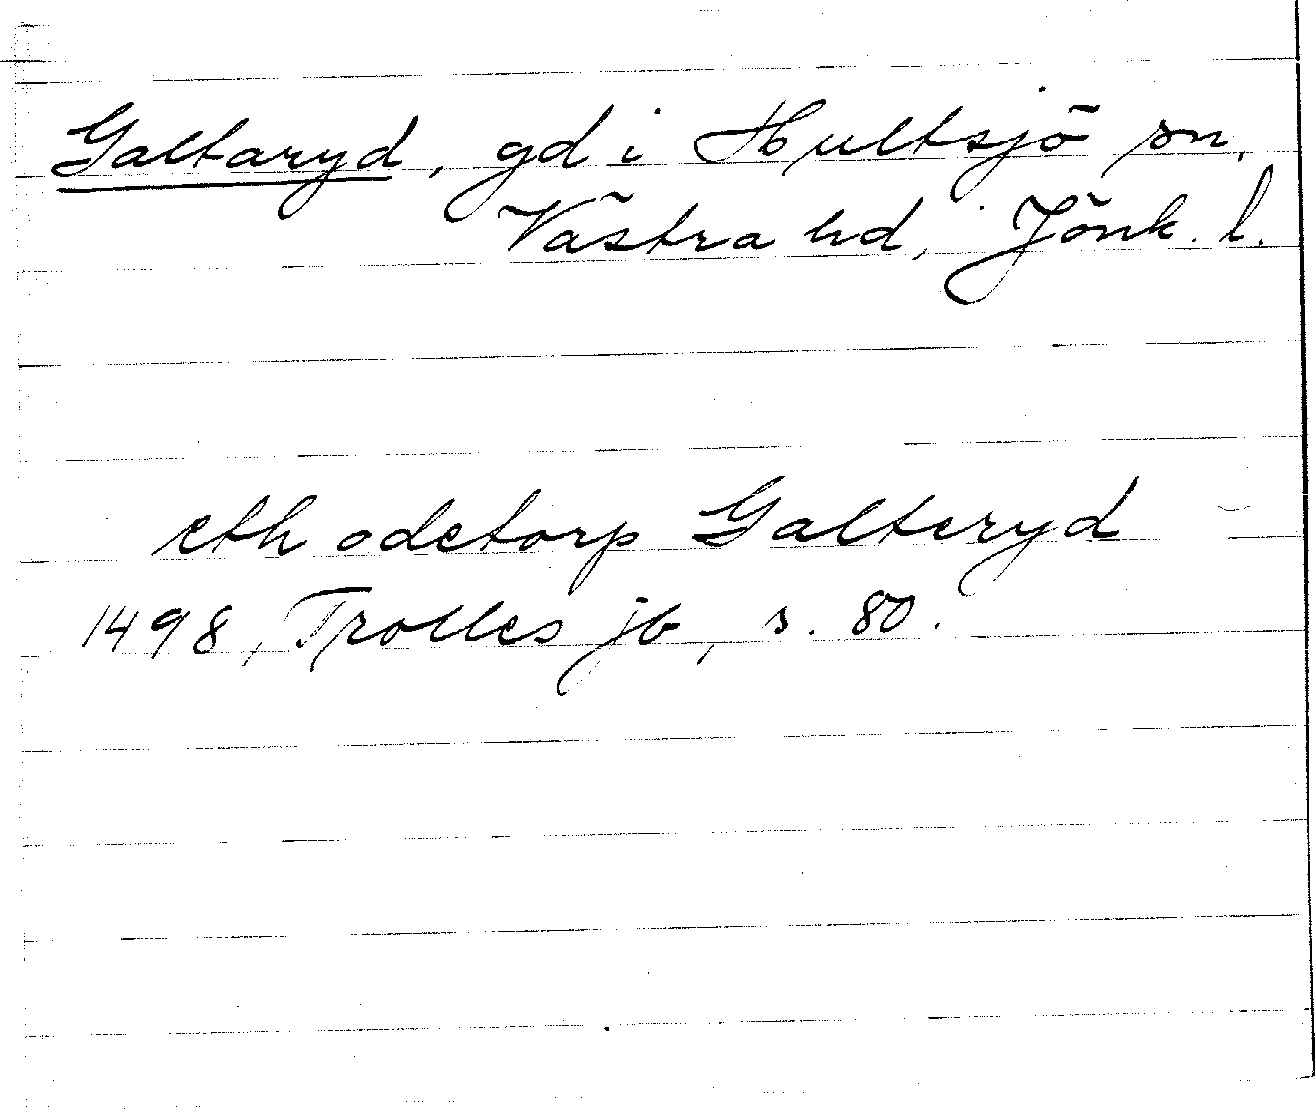 Galtaryd, gd i Hultsjö sn,
Västra hd, Jönk. l.
eth odetorp Galteryd
1498, Trolles jb, s. 80.